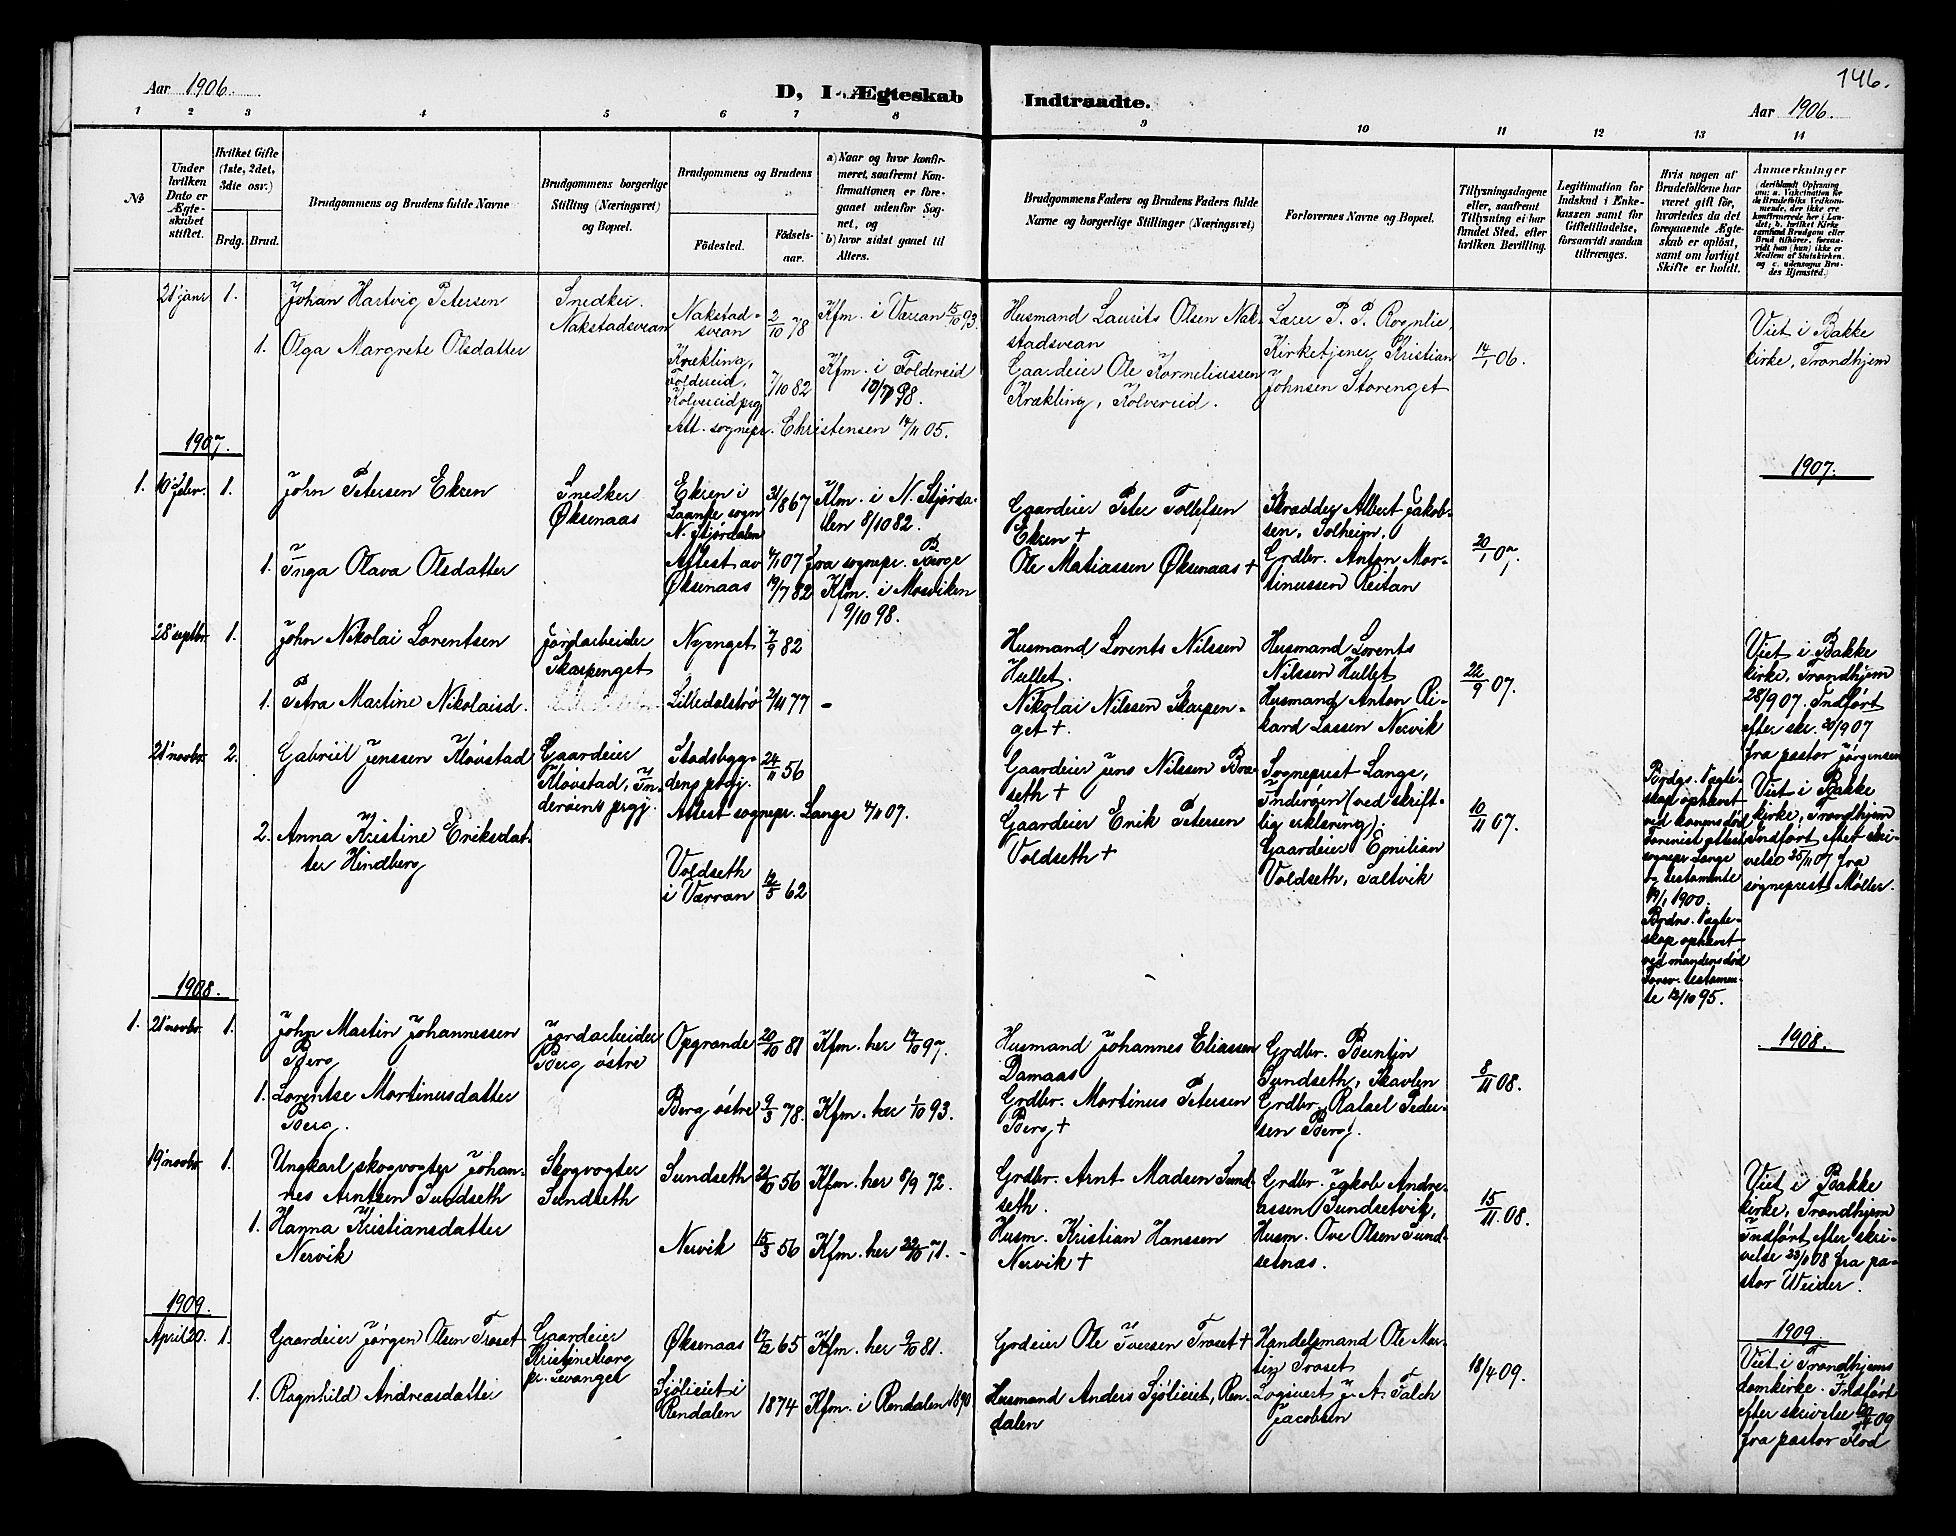 146.
Aar 1906.
D, I Ægteskab Indtraadte.
Aar 1906.
1 2 3 4 5 6 7 8 9 10 11 12 13 14
№
Under hvilken Dato er Ægteskabet stiftet.
Hvilket Gifte (1ste, 2det, 3die osv.)
Brdg. Brud.
Brudgommens og Brudens fulde Navne
Brudgommens borgerlige Stilling (Næringsvei) og Bopæl.
Brudgommens og Brudens
Födested.
Födselsaar.
a) Naar og hvor konfirmeret, saafremt Konfirmationen er foregaaet udenfor Sognet, og
b) hvor sidst gaaet til Alters.
Brudgommens Faders og Brudens Faders fulde Navne og borgerlige Stillinger (Næringsvei)
Forlovernes Navne og Bopæl.
Tillysningsdagene eller, saafremt Tillysning ei har fundet Sted, efter hvilken Bevilling.
Legitimation for Indskud i Enkekassen samt for Giftetilladelse, forsaavidt saadan tiltrænges.
Hvis nogen af Brudefolkene har været gift før, hvorledes da det foregaaende Ægteskab er opløst, samt om lovligt Skifte er holdt.
Anmerkninger
(deriblandt Oplysning om: a. Vaccination for de Brudefolks Vedkommende, der ikke ere konfirmerede her i Landet; b. hvilket Kirkesamfund Brudgom eller Brud tilhører, forsaavidt han (hun) ikke er Medlem af Statskirken, og c. udensogns Brudes Hjemsted.)
21 janr 1. Johan Hartvig Petersen
Snedker.
Nakstadsvean
Nakstadsvean
2/10 78
Kfm. i Værran 15/10 93.
Husmand Laurits Olsen Nakstadsvean
Lærer P. P. Rognlie,
Kirketjener Kristian Johnsen Storenget
14/1 06.
Viet i Bakke kirke, Trondhjem
1. Olga Margrete Olsdatter
Krækling, Foldereid, Kolvereid prgj
7/10 82
Kfm. i Foldereid 10/7 98.
Gaardeier Ole Korneliussen Krækling, Kolvereid.
Att. sognepr. Christensen 14/11 05.
1907.
1907.
1. 10 febr. 1. John Petersen Ekren
Snedker
Øksenaas
Ekren i Laanke sogn N. Stjørdalen
31/8 67
Kfm. i N. Stjørdalen 8/10 82.
Gaardeier Peter Tollefsen Ekren +
Skrædder Albert Jakobsen, Solheim.
20/1 07.
Attest av 4/1 07 fra sognepr. Berge
1. Inga Olava Olsdatter
Øksenaas
19/7 82
Kfm. i Mosviken 9/10 98.
Ole Matiassen Øksenaas +
Grdbr. Anton Martinussen Reitan
28 septbr. 1. John Nikolai Lorentsen
Jordarbeider
Skarpenget
Nyenget
7/9 82
Husmand Lorents Nilssen Hullet.
Husmand Lorents Nilssen Hullet
22/9 07.
Viet i Bakke kirke, Trondhjem 28/9 07. Indført efter skr. 30/9 07 fra pastor Jørgensen
1. Petra Martine Nikolaisd.
Lilledalstrø
2/11 77
-
Nikolai Nilssen Skarpenget +.
Husmand Anton Rikard Lassen Nervik
21 novbr. 2. Gabriel Jenssen Kløvstad
Gaardeier Kløvstad, Inderøens prgj.
Stadsbygdens prgj.
24/11 56
Attest sognepr. Lange 4/11 07.
Gaardeier Jens Nilssen Braseth +
Sogneprest Lange, Inderøen (ved skriftlig erklæring).
10/11 07.
Brdgs. 1 ægteskap ophævet ved konens død forevist attest sognepr. Lange og testamente 19/1 1900.
Viet i Bakke kirke, Trondhjem Indført efter skrivelse 25/11 07 fra sogneprest Møller.
2. Anna Kristine Eriksdatter Hindberg
Voldseth i Værran
12/5 62
Gaardeier Erik Petersen Voldseth +
Gaardeier Emilian Voldseth, Saltvik
Brdns. 1 ægteskap ophævet ved mandens død forev. testamente 12/10 95.
1908.
1908.
1. 21 novbr. 1. John Martin Johannessen Berg
Jordarbeider
Berg østre
Opgrande
20/10 81
Kfm. her 17/10 97.
Husmand Johannes Eliassen Damaas
Grdbr. Berntin Sundseth, Skavlen
8/11 08.
1. Lorentse Martinusdatter Berg.
Berg østre
9/3 78.
Kfm. her 1/10 93.
Grdbr. Martinus Petersen Berg +
Grdbr. Rafael Pedersen Berg.
19 novbr. 1. Ungkarl skogvogter Johannes Arntsen Sundseth
Skogvogter
Sundseth
Sundseth
21/10 56
Kfm. her 8/9 72.
Grdbr. Arnt Madsen Sundseth.
Grdbr. Jakob Andreassen Sundsetvik,
15/11 08.
Viet i Bakke kirke, Trondhjem Indført efter skrivelse 23/11 08 fra pastor Weider.
1. Hanna Kristiansdatter Nervik
Nervik
15/3 56
Kfm. her 22/10 71. -
Husm. Kristian Hanssen Nervik +
Husm. Ove Olsen Sundsetnæs.
1909.
1909.
April 20. 1. Gaardeier Jørgen Olsen Troset
Gaardeier
Kristineborg
pr. Levanger
Øksenaas
17/12 65
Kfm. her 9/10 81.
Grdeier Ole Iversen Troset +
Handelsmand Ole Martin Troset
18/4 09.
Viet i Trondhjems domkirke. Indført efter skrivelse 20/4 09 fra pastor Flod
1. Ragnhild Andreasdatter
Sjøliseit i Rendalen
1874
Kfm. i Rendalen 1890
Husmand Anders Sjøliseit, Rendalen
Logivert J. A. Falch Jacobsen